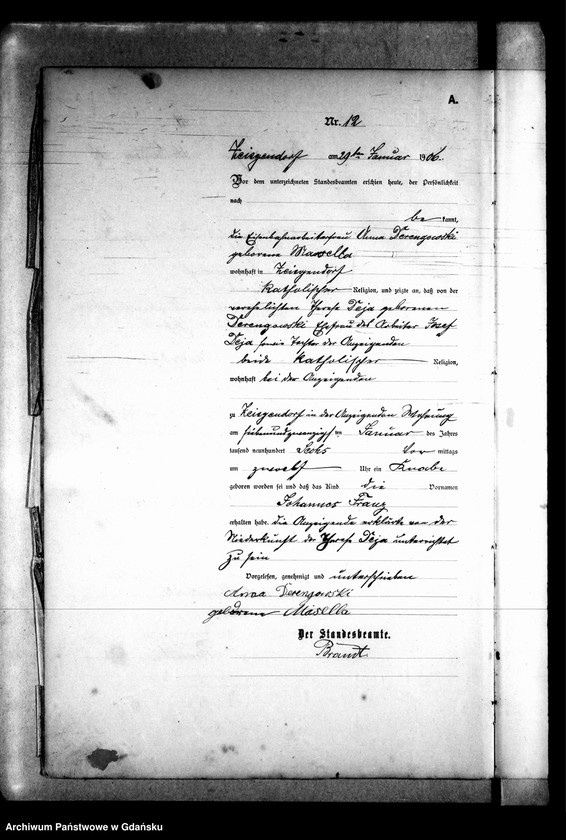 A.
Nr. 12
Zeisgendorf am 29ten Januar 1906.
Vor dem unterzeichneten Standesbeamten erschien heute, der Persönlichkeit
nach
be kannt,
die Eisenbahnarbeiterfrau Anna Derengowski
geborene Masella
wohnhaft in Zeisgendorf
katholischer Religion, und zeigte an, daß von der
verehelichten Therese Deja geborenen
Derengowski Ehefrau des Arbeiter Josef
Deja sowie Tochter der Anzeigenden
beide katholischer Religion,
wohnhaft bei der Anzeigenden
zu Zeisgendorf in der Anzeigenden Wohnung
am siebenundzwanzigsten Januar des Jahres
tausend neunhundert Sechs vor mittags
um zwoelf Uhr ein Knabe
geboren worden sei und daß das Kind die Vornamen
Johannes Franz
erhalten habe. die Anzeigende erklärte von der
Niederkunft der Therese Deja unterrichtet
zu sein
Vorgelesen, genehmigt und unterschrieben
Anna Derengowski
geborene Masella
Der Standesbeamte.
Brandt
Archiwum Państwowe w Gdańsku